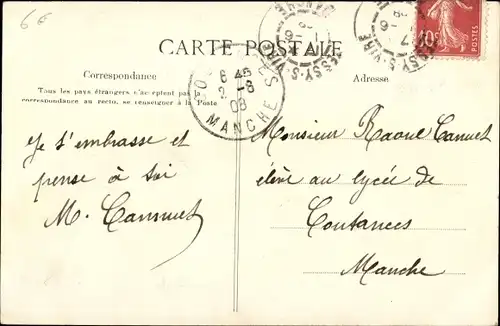 6e
CARTE POSTALE
Correspondance
Tous les pays étrangers n'acceptent pas la
correspondance au recto, se renseigner à la Poste
Adresse
6 45
2 -8
08
MANCHE
ESSY-S-VIRE
10c
POSTES
Je t'embrasse et
pense à toi
M. Cannuet
Monsieur Raoul Cannuet
élève au lycée de
Coutances
Manche